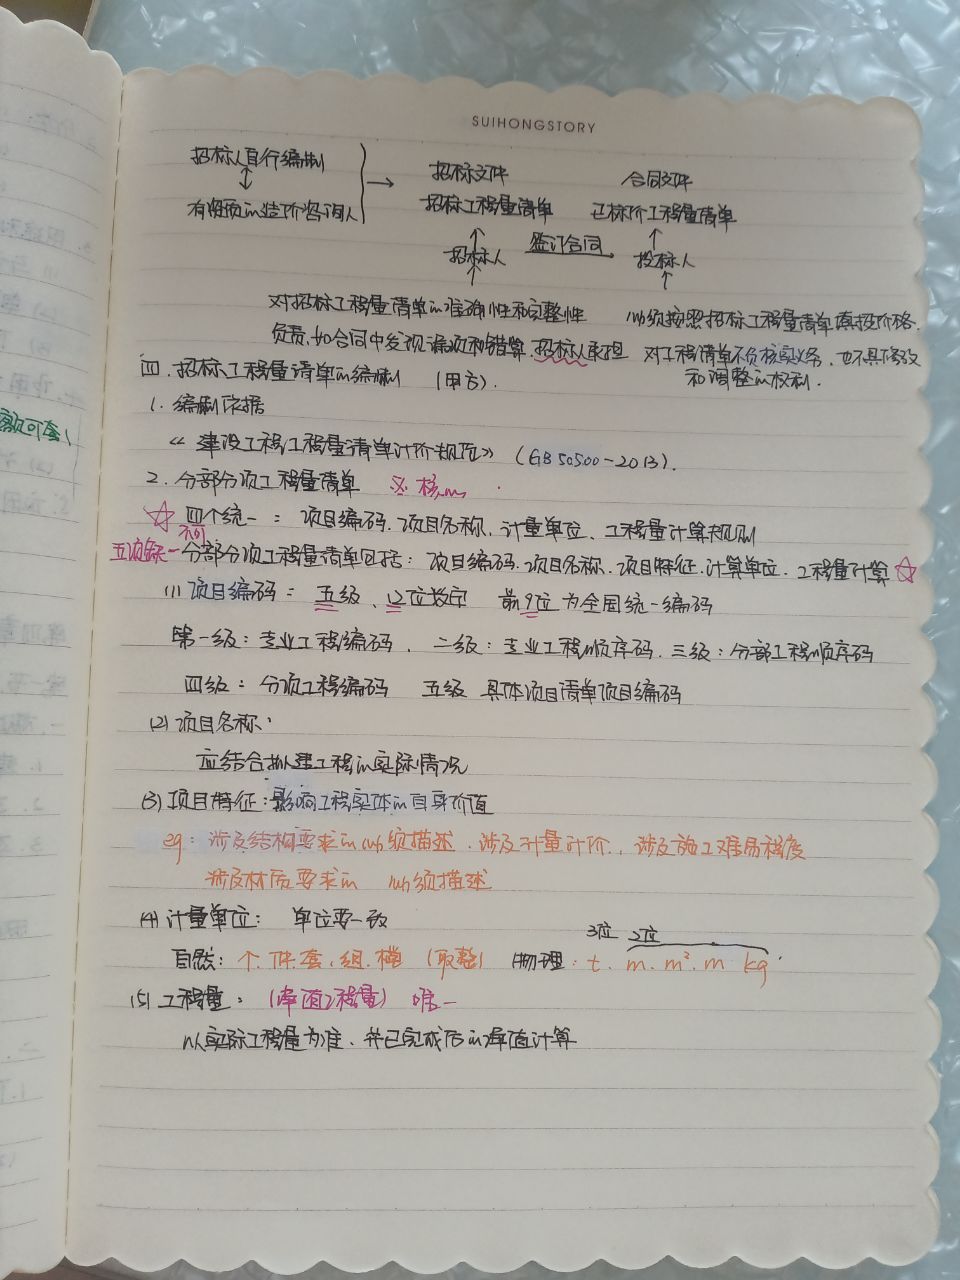 SUIHONGSTORY
招标人自行编制
有资质的造价咨询人
招标文件
招标工程量清单
招标人
签订合同
合同文件
已标价工程量清单
投标人
对招标工程量清单的准确性和完整性
负责,如合同中发现漏项和错算,招标人承担
必须按照招标工程量清单填报价格.
对工程清单不负核实义务、也不具修改
和调整的权利.
四.招标工程量清单的编制 (甲方).
1. 编制依据
《建设工程工程量清单计价规范》 (GB 50500-2013).
2. 分部分项工程量清单 ※ 核心
☆ 四个统一: 项目编码.项目名称.计量单位、工程量计算规则
五项缺一不可 分部分项工程量清单包括: 项目编码.项目名称.项目特征.计算单位.工程量计算 ☆
(1) 项目编码: 五级、12位数字 前9位为全国统一编码
第一级:专业工程编码. 二级:专业工程顺序码.三级:分部工程顺序码
四级: 分项工程编码 五级 具体项目清单项目编码
(2) 项目名称:
应结合拟建工程的实际情况
(3) 项目特征:影响工程实体的自身价值
eg: 涉及结构要求的必须描述.涉及计量计价., 涉及施工难易程度
涉及材质要求的 必须描述
(4) 计量单位: 单位要一致
3位 2位
自然: 个.件.套.组.樘 (取整) 物理: t. m. m². m kg
(5) 工程量. (净值工程量) 唯一
以实际工程量为准、并已完成后的净值计算